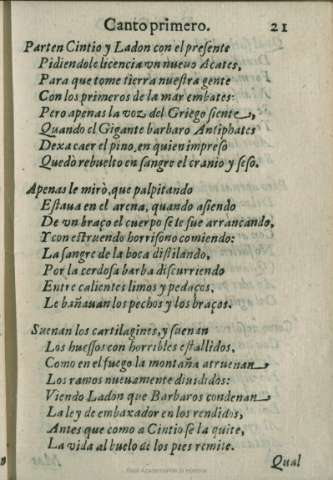 Canto primero. 21
Parten Cintio y Ladon con el presente
Pidiendole licencia vn nueuo Acates,
Para que tome tierra nuestra gente
Con los primeros de la mar embates:
Pero apenas la voz del Griego siente,
Quando el Gigante barbaro Antiphates
Dexa caer el pino, en quien impreso
Quedò rebuelto en sangre el cranio y seso.
Apenas le mirò, que palpitando
Estaua en el arena, quando asiendo
De vn braço el cuerpo se le fue arrancando,
Y con estruendo horrisono comiendo:
La sangre de la boca distilando,
Por la cerdosa barba discurriendo
Entre calientes limos y pedaços,
Le bañauan los pechos y los braços.
Suenan los cartilagines, y suenan
Los huessos con horribles estallidos,
Como en el fuego la montaña atruenan
Los ramos nueuamente diuididos:
Viendo Ladon que Barbaros condenan
La ley de embaxador en los rendidos,
Antes que como a Cintio se la quite,
La vida al buelo de los pies remite.
Qual
Real Academia de la Historia